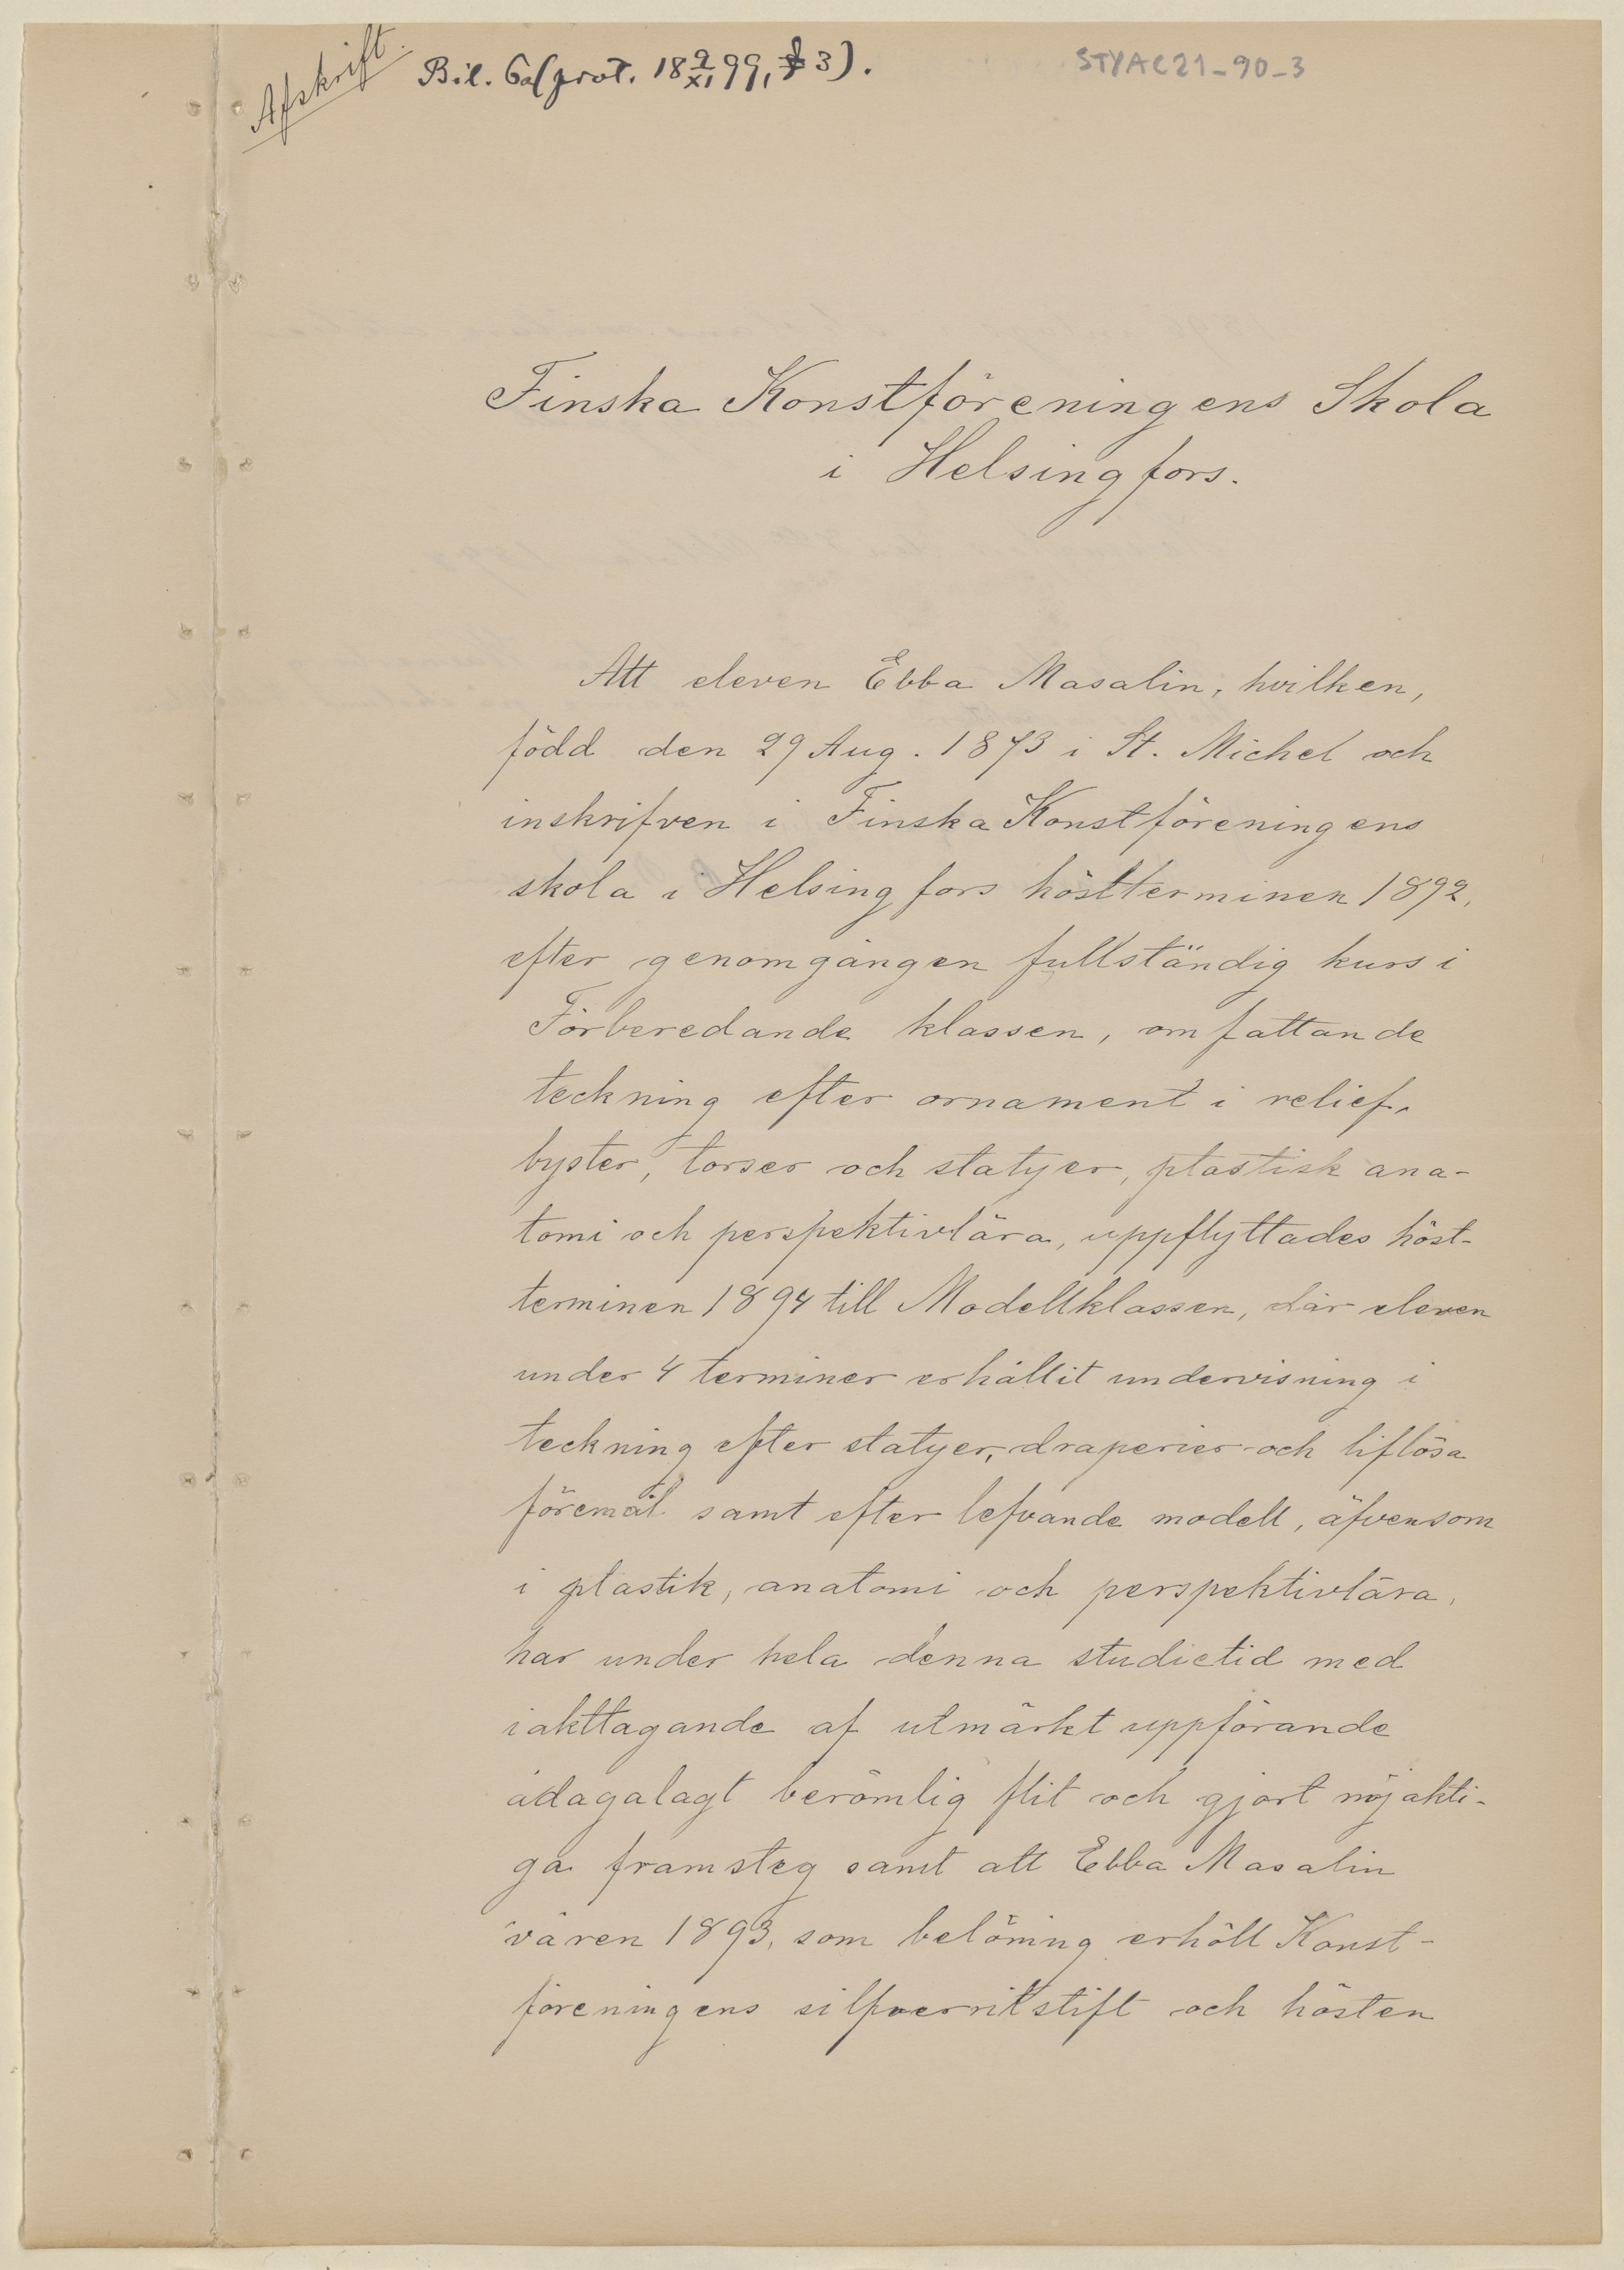 Afskrift.
Bil. 6a (prot. 18 2/XI 99, § 3).
STYAC21-90-3
Finska Konstföreningens Skola
i Helsingfors.
Att eleven Ebba Masalin, hvilken,
född den 29 Aug. 1873 i St. Michel och
inskrifven i Finska Konstföreningens
skola i Helsingfors höstterminen 1892,
efter genomgången fullständig kurs i
Förberedande klassen, omfattande
teckning efter ornament i relief,
byster, torser och statyer, plastisk ana-
tomi och perspektivlära, uppflyttades höst-
terminen 1894 till Modellklassen, där eleven
under 4 terminer erhållit undervisning i
teckning efter statyer, draperier och liflösa
föremål samt efter lefvande modell, äfvensom
i plastik, anatomi och perspektivlära,
har under hela denna studietid med
iakttagande af utmärkt uppförande
ådagalagt berömlig flit och gjort nöjakti-
ga framsteg samt att Ebba Masalin
våren 1893, som belöning erhöll Konst-
föreningens silfverritstift och hösten